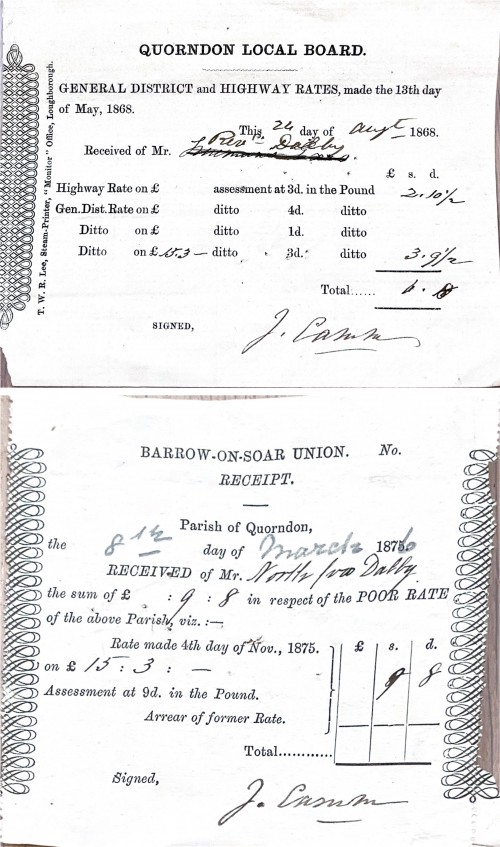 QUORNDON LOCAL BOARD.
GENERAL DISTRICT and HIGHWAY RATES, made the 13th day
of May, 1868.
This 24 day of Augt 1868.
Received of Mr. Revd. Dalby
£ s. d.
Highway Rate on £ assessment at 3d. in the Pound 2. 10 1/2
Gen. Dist. Rate on £ ditto 4d. ditto
Ditto on £ ditto 1d. ditto
Ditto on £ 15.3 — ditto 3d. ditto 3. 9 1/2
Total...... 6. 8
SIGNED, J. Camm
T. W. R. Lee, Steam-Printer, "Monitor" Office, Loughborough.
BARROW-ON-SOAR UNION. No.
RECEIPT.
Parish of Quorndon,
the 8th day of March 1876
RECEIVED of Mr. North for Dalby
the sum of £ : 9 : 8 in respect of the POOR RATE
of the above Parish, viz. :—
Rate made 4th day of Nov., 1875. £ s. d.
on £ 15 : 3 : — 9 8
Assessment at 9d. in the Pound.
Arrear of former Rate.
Total............
Signed,
J. Camm